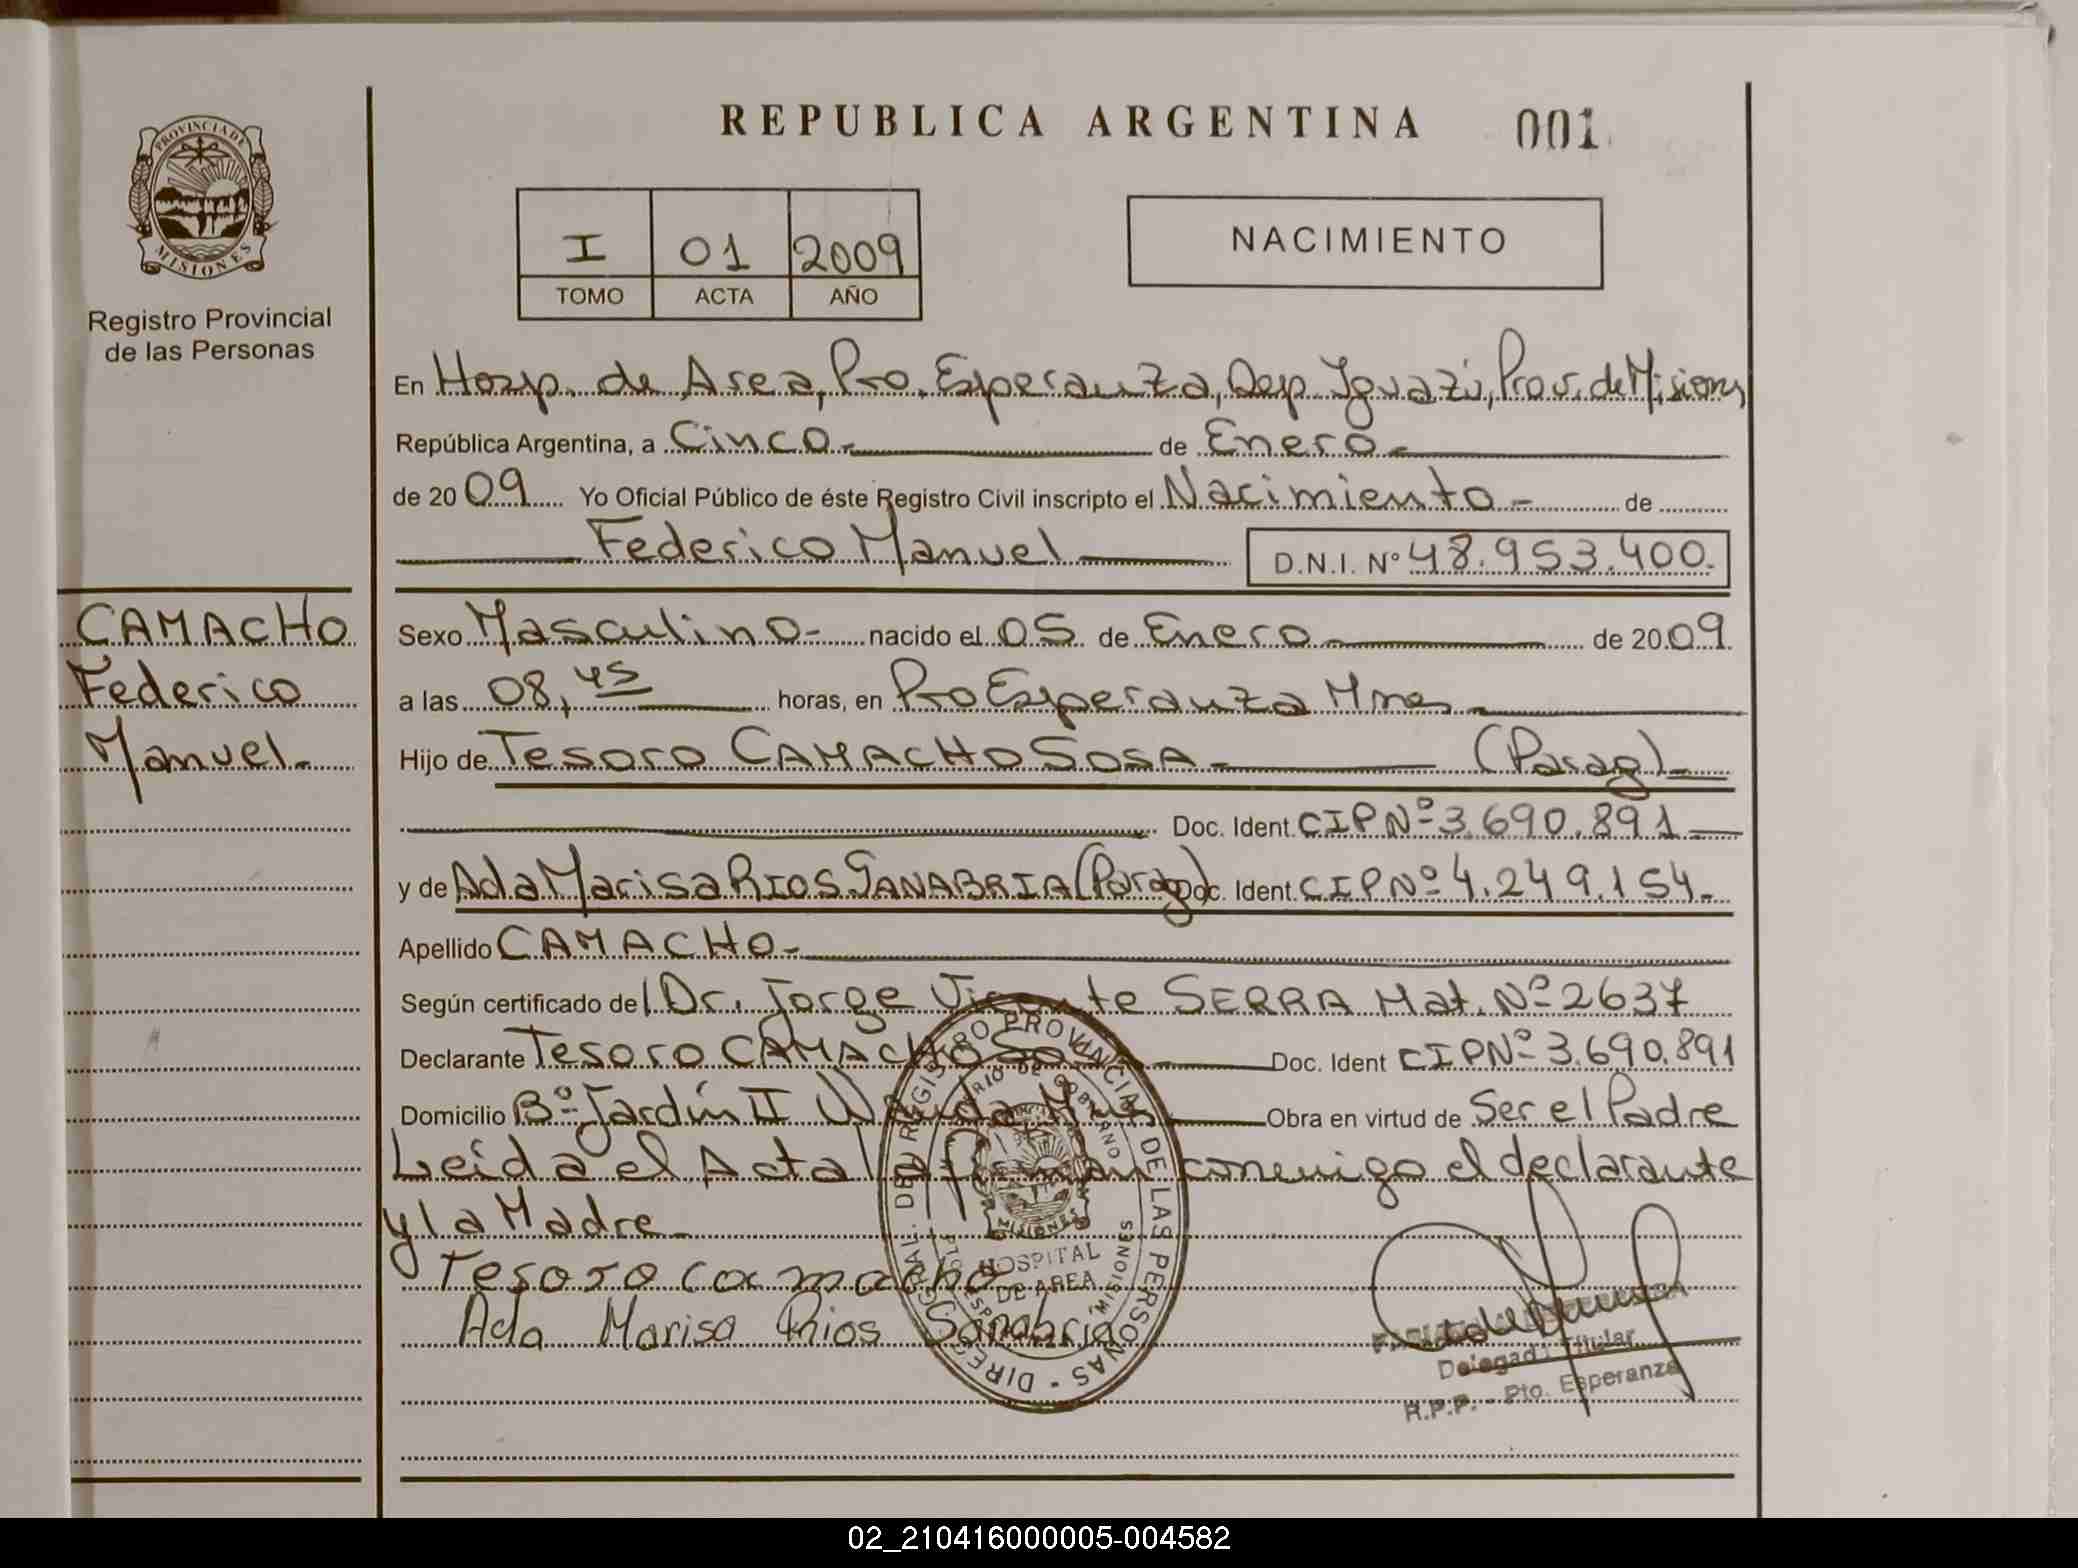 REPUBLICA ARGENTINA 001
PROVINCIA DE
MISIONES
Registro Provincial
de las Personas
I 01 2009
TOMO ACTA AÑO
NACIMIENTO
En Hosp. de Area, Pto. Esperanza, Dep. Iguazú, Prov. de Misiones
República Argentina, a Cinco.- de Enero.-
de 2009 Yo Oficial Público de éste Registro Civil inscripto el Nacimiento.- de
Federico Manuel D.N.I. Nº 48.953.400.-
CAMACHO
Federico
Manuel.-
Sexo Masculino.- nacido el 05 de Enero.- de 2009.
a las 08,45 horas, en Pto Esperanza Mnes.-
Hijo de Tesoro CAMACHO SOSA.- (Parag).-
Doc. Ident. CIP Nº 3.690.891.-
y de Ada Marisa RIOS SANABRIA (Parag) Doc. Ident. CIP Nº 4.249.154.-
Apellido CAMACHO.-
Según certificado del Dr. Jorge Vicente SERRA Mat. Nº 2637
Declarante Tesoro CAMACHO Sosa Doc. Ident CIP Nº 3.690.891
Domicilio Bº Jardín II Wanda Mnes Obra en virtud de Ser el Padre
Leida el Acta la firman conmigo el declarante
y la Madre.-
Tesoro camacho
Ada Marisa Rios Sanabria
DIREC. GRAL. DEL REGISTRO PROVINCIAL DE LAS PERSONAS
MISIONES
HOSPITAL
DE AREA
MISIONES
Delegado Titular
R.P.P. - Pto. Esperanza
02_210416000005-004582